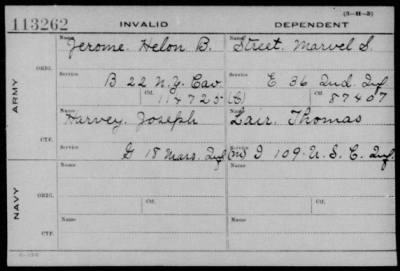 (3-M-3)
113262 INVALID DEPENDENT
Name Jerome. Helon B. Name Street. Marvel S.
ORIG. Service B 22 N.Y. Cav. Service E 36 Ind. Inf
Ctf. 117725 (C) Ctf. 87407
ARMY
Name Harvey. Joseph Name Lair. Thomas
CTF. Service G 18 Mass. Inf Service (m) I 109. U.S.C. Inf.
Name Name
ORIG. Service Ctf. Service Ctf.
NAVY
Name Name
CTF. Service Service